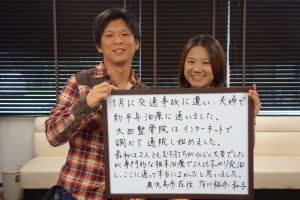 1月に交通事故に遭い、夫婦で
約半年治療に通いました。
大田整骨院はインターネットで
調べて通院し始めました。
最初は2人ともむち打ちがひどく大変でした
が専門的な根本治療で2人とも良
し、ここに通って本当によかったと思いました。
鹿児島市在住